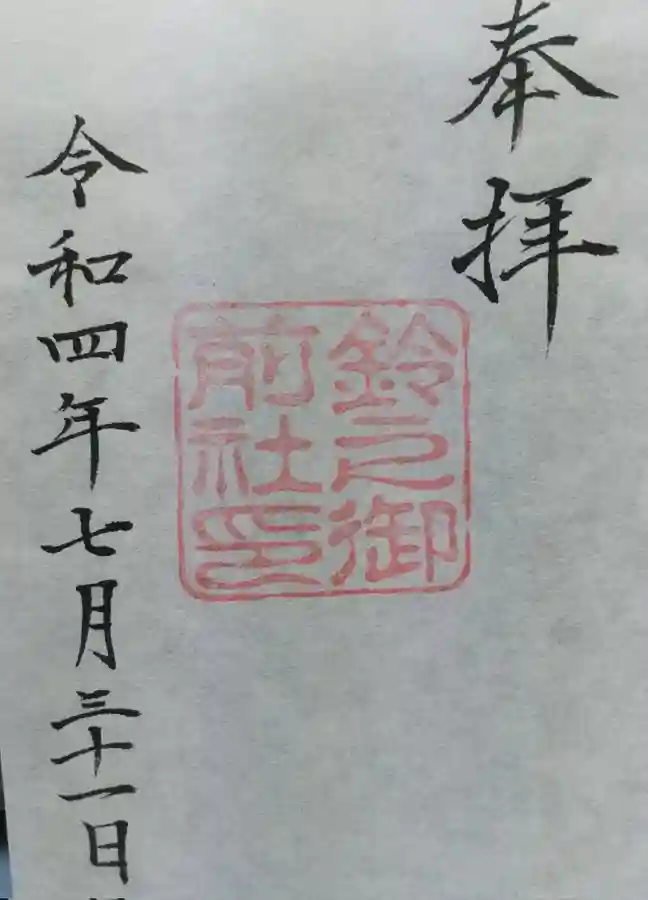 奉拝
鈴之御
前社印
令和四年七月三十一日